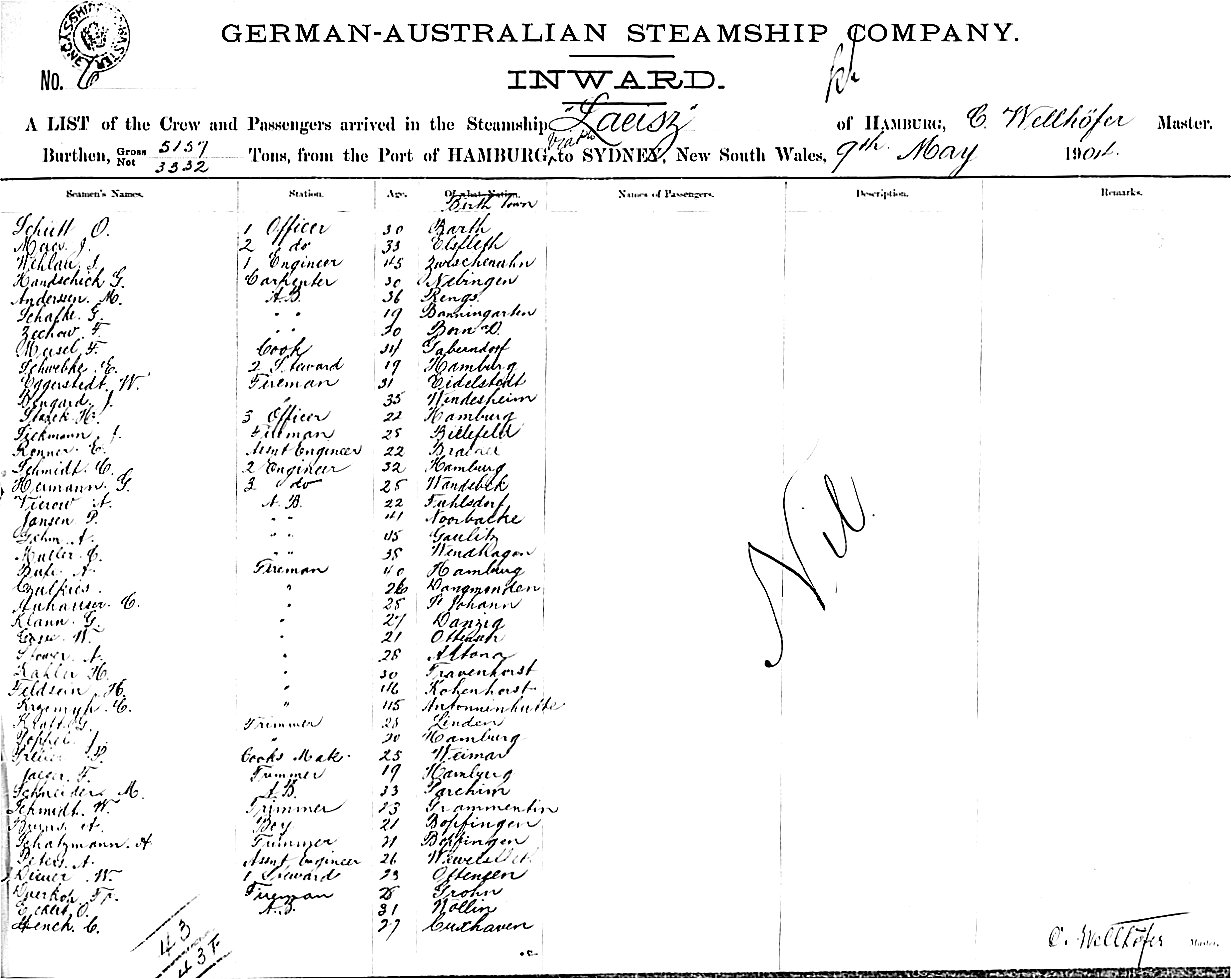 GERMAN-AUSTRALIAN STEAMSHIP COMPANY.
No. 6
INWARD.
A LIST of the Crew and Passengers arrived in the Steamship "Laeisz" of HAMBURG, C. Wellhöfer Master.
Burthen, Gross 5157 Net 3332 Tons, from the Port of HAMBURG, to SYDNEY, New South Wales, 9th May 1904.
Seamen's Names. Station. Age. Of what Nation. Birth Town Names of Passengers. Description. Remarks.
Schütt O. 1 Officer 30 Barth
J. 2 do 33 Elsfleth
Wehlau J. 1 Engineer 45 Zwischenahn
Handschick G. Carpenter 30 Nebingen
Anderssen M. A.B. 36 Rengs
Schafke G. " " 19 Banningarten
Zechow F. " " 20 Born D.
Meisel F. Cook 34 Gaberndorf
Schwebke E. 2 Steward 19 Hamburg
Eggerstedt W. Fireman 31 Eidelstedt
Bongard J. " 35 Windesheim
H. 3 Officer 22 Hamburg
Tiekmann J. Fireman 25 Billefeld
Renner E. Assnt Engineer 22
Schmidt C. 2 Engineer 32 Hamburg
Hermann G. 3 do 25 Wandsbek
Vierow A. A.B. 22 Fuhlsdorf
Jansen P. " " 41 Noorbacke
A. " " 45 Gaulitz
Muller C. " " 38 Wendhagen
A. Fireman 40 Hamburg
" 26 Dangmonden
Auhauser C. " 25 St Johann
Klann G. " 27 Danzig
W. " 21 Ottensen
A. " 28 Altona
Kahler H. " 30 Travenhorst
Feldsein H. " 46 Kohenhorst
C. " 45 Antonninhutte
G. Trimmer 28 Linden
Popper J. " 20 Hamburg
P. Cooks Mate 25 Weimar
Jaeger F. Trimmer 19 Hamburg
Schneider M. A.B. 33 Parchim
Schmidt W. Trimmer 23 Grammentin
Bruns A. Boy 21 Bopfingen
Schatzmann A Trimmer 21 Bopfingen
Peters A. Assnt Engineer 26
W. 1 Steward 23 Ottensen
Fr. Fireman 28 Grohn
Eckert O. A.B. 31 Wollin
Hench C. 27 Cuxhaven
Nil.
43
43
C. Wellhöfer Master.